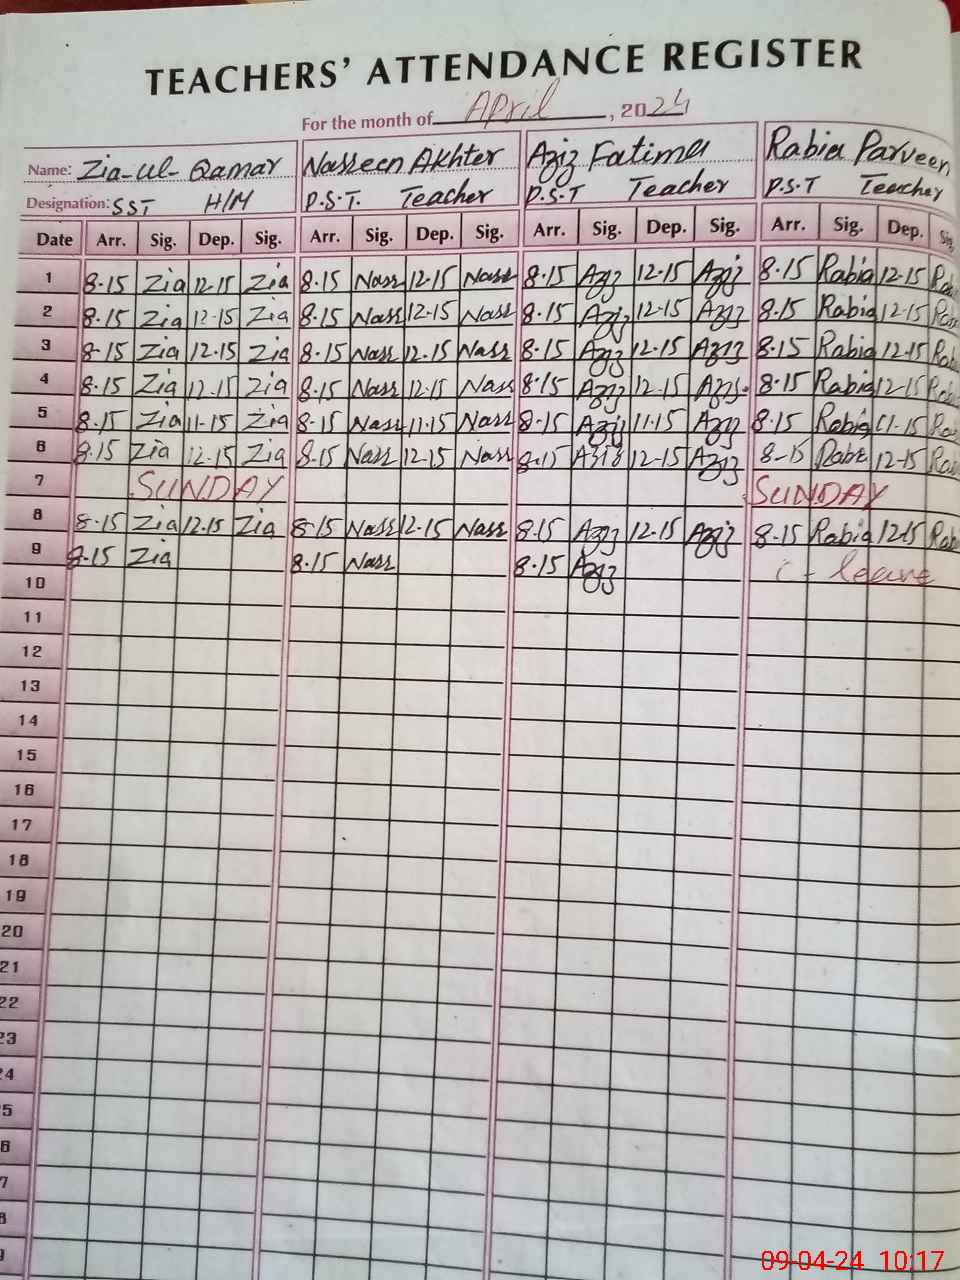 TEACHERS' ATTENDANCE REGISTER
For the month of April, 2024
Name: Zia-ul-Qamar Nasseen Akhter Aziz Fatima Rabia Parveen
Designation: SST H/M P.S.T. Teacher P.S.T Teacher P.S.T Teacher
Date Arr. Sig. Dep. Sig. Arr. Sig. Dep. Sig. Arr. Sig. Dep. Sig. Arr. Sig. Dep. Sig.
1 8.15 Zia 12.15 Zia 8.15 Nass 12.15 Nass 8.15 Aziz 12.15 Aziz 8.15 Rabia 12.15 Rab
2 8.15 Zia 12-15 Zia 8.15 Nass 12.15 Nass 8.15 Aziz 12.15 Aziz 8.15 Rabia 12.15 Rab
3 8-15 Zia 12.15 Zia 8.15 Nass 12.15 Nass 8.15 Aziz 12.15 Aziz 8.15 Rabia 12.15 Rab
4 8.15 Zia 12.15 Zia 8.15 Nass 12.15 Nass 8.15 Aziz 12.15 Aziz 8.15 Rabia 12-15 Rab
5 8.15 Zia 11-15 Zia 8-15 Nass 11.15 Nass 8.15 Aziz 11.15 Aziz 8.15 Rabia 11-15 Rab
6 8.15 Zia 12-15 Zia 8.15 Nass 12.15 Nass 8.15 Aziz 12-15 Aziz 8-15 12-15 Rab
7 SUNDAY SUNDAY
8 8.15 Zia 12.15 Zia 8-15 Nass 12.15 Nass 8.15 Aziz 12.15 Aziz 8.15 Rabia 12.15 Rab
9 8.15 Zia 8.15 Nass 8.15 Aziz c - leave
10
11
12
13
14
15
16
17
18
19
20
21
22
23
24
5
6
7
8
9
09-04-24 10:17